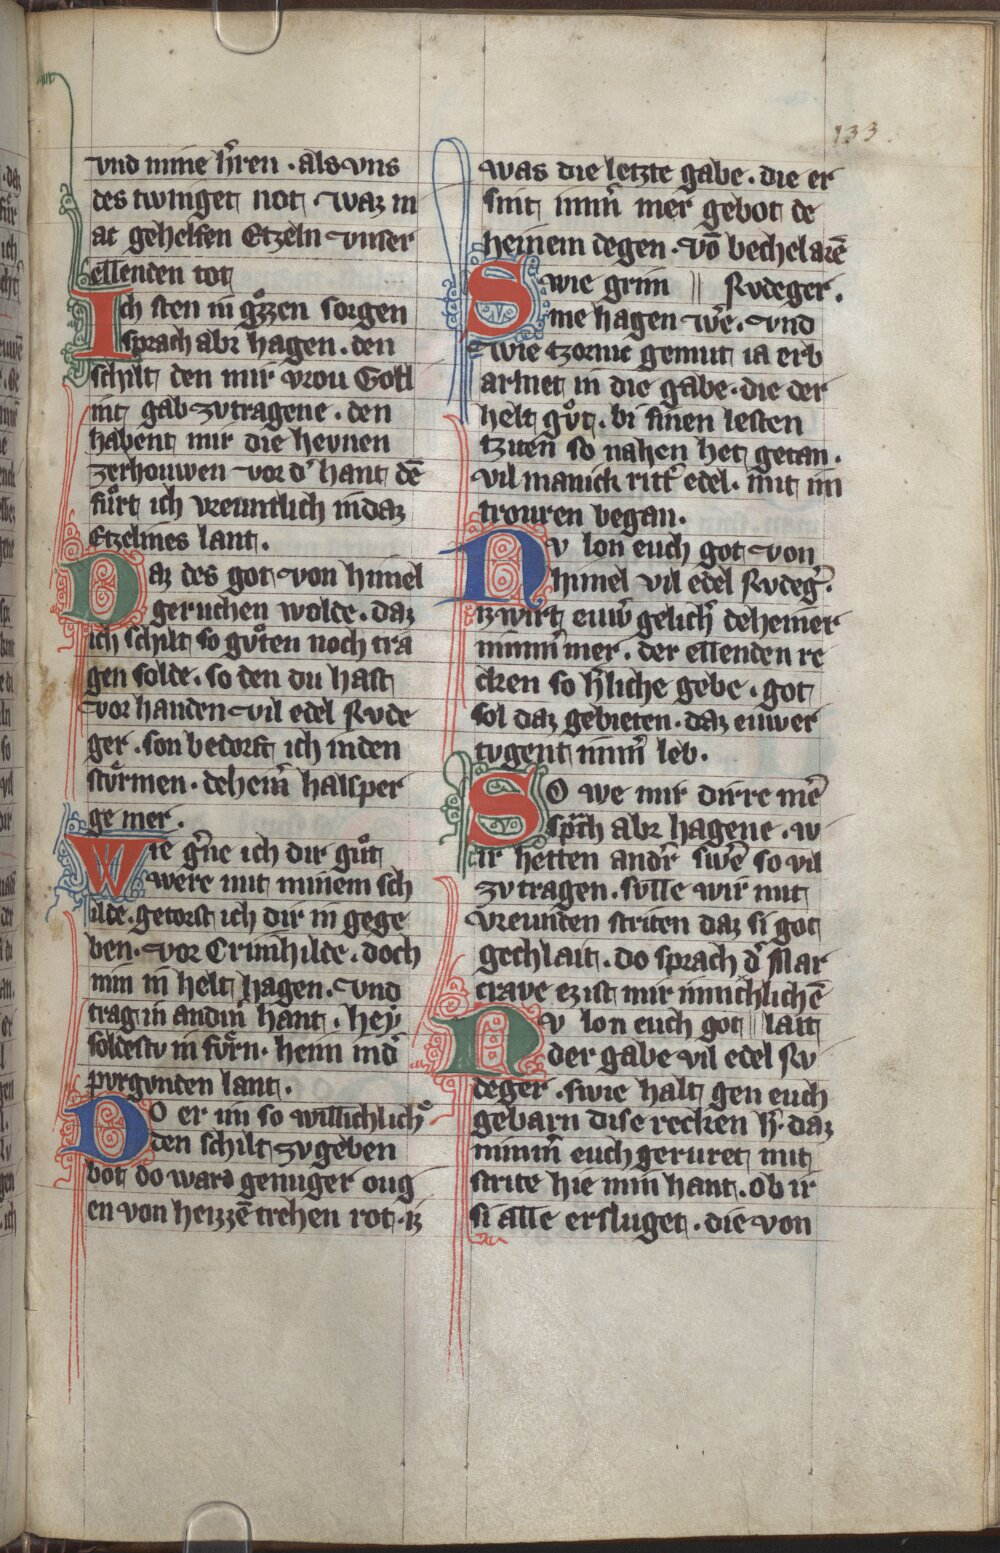 133.
vnd mine h̓ren · als vns
des twinget not · waz m
ac gehelfen Etzeln vnser
ellenden tot
Ich sten in goͤzzen sorgen
sprach abr hagen · den
schilt den mir vrou Gotl
int gab zvtragene · den
habent mir die hevnen
zerhouwen vor d̓ hant dē
fuͤrt ich vreuntlich indaz
Etzelines lant ·
Daz des got von himel
geruchen wolde · daz
ich schilt so gvͦten noch tra
gen solde · so den du hast
vor handen vil edel Rvde
ger · son bedorft ich inden
stvͤrmen · dehein̓ halsper
ge mer ·
Wie g̓ne ich dir guͦt
were mit minem sch
ilde · getorst ich dir in gege
ben · vor Crimhilde · doch
nim in helt hagen · vnd
trag in andin̓ hant · hey
soldestv in fvͤrn · heim ind̓
pvrgvnden lant ·
Do er im so willichlich̓
den schilt zvgeben
bot do ward genuger oug
en von heizzē trehen rot · iz
was die letzte gabe · die er
sint nim̄̓ mer gebot de
heinem degen · vō bechelarē
Swie grim Rvdeger ·
me hagen we̓re · vnd
wie tzornic gemut ia erb
armet in die gabe · die der
helt gvͦt · bi sinen lesten
tziten so nahen het getan ·
vil manick ritt̓ edel · mit im
trouren began ·
Nv lon euch got von
himel vil edel Rvdeg̓ ·
iz wirt euw̓ gelich̓ deheiner
nimm̓ mer · der ellenden re
cken so h̓liche gebe · got
sol daz gebieten · daz euwer
tvgent nim̄̓ leb ·
So we mir dirre me̓
sp̓ch abr hagene · w
ir hetten andr̓ swe̓ so vil
zv tragen · svlle wir mit
vreunden striten daz si got
gechlait · do sprach d̓ Mar
crave ez ist mir innichlichē
Nv lon euch got lait
der gabe vil edel Rv
deger · swie halt gen euch
gebarn dise recken h̓ · daz
nimm̓ euch geruret mit
strite hie min hant · Ob ir
si alle ersluget · die von